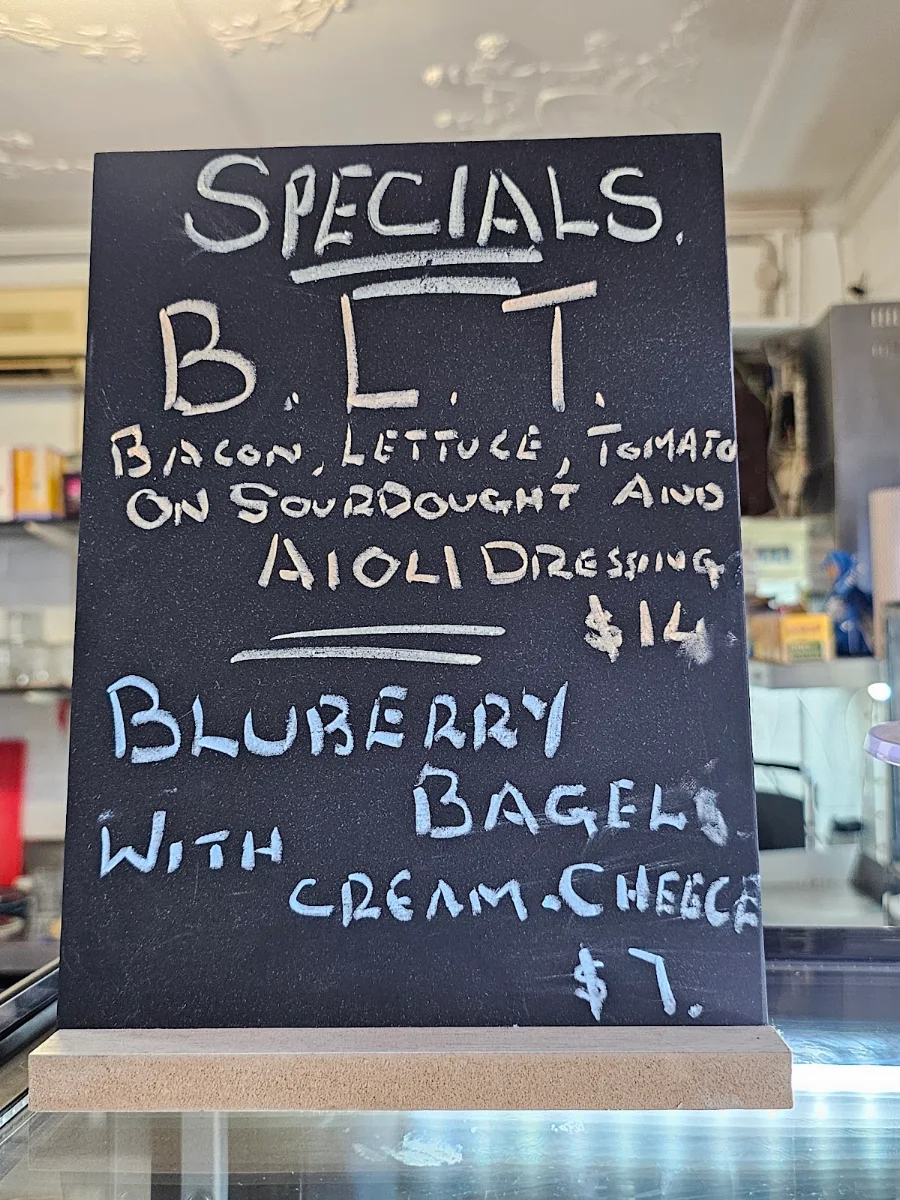 SPECIALS.
B.L.T.
BACON, LETTUCE, TOMATO
ON SOURDOUGHT AND
AIOLI DRESSING
$14
BLUBERRY
BAGELS
WITH
CREAM.CHEECE
$7.